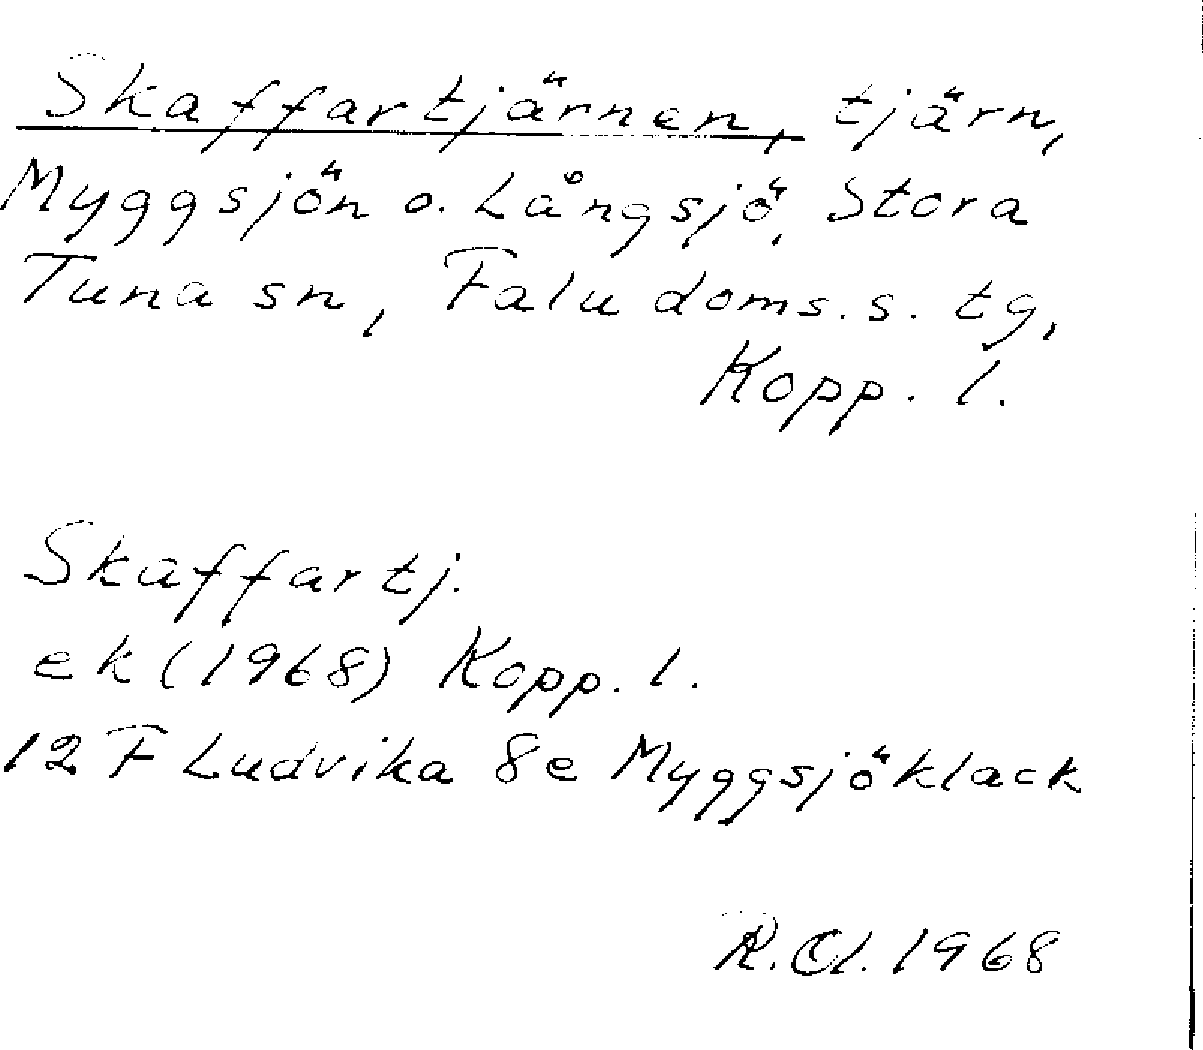 Skaffartjärnen, tjärn,
Myggsjön o. Långsjö, Stora
Tuna sn, Falu doms.s. tg,
Kopp. l.
Skaffartj.
ek (1968) Kopp. l.
12 F Ludvika 8e Myggsjöklack
R.Ol. 1968